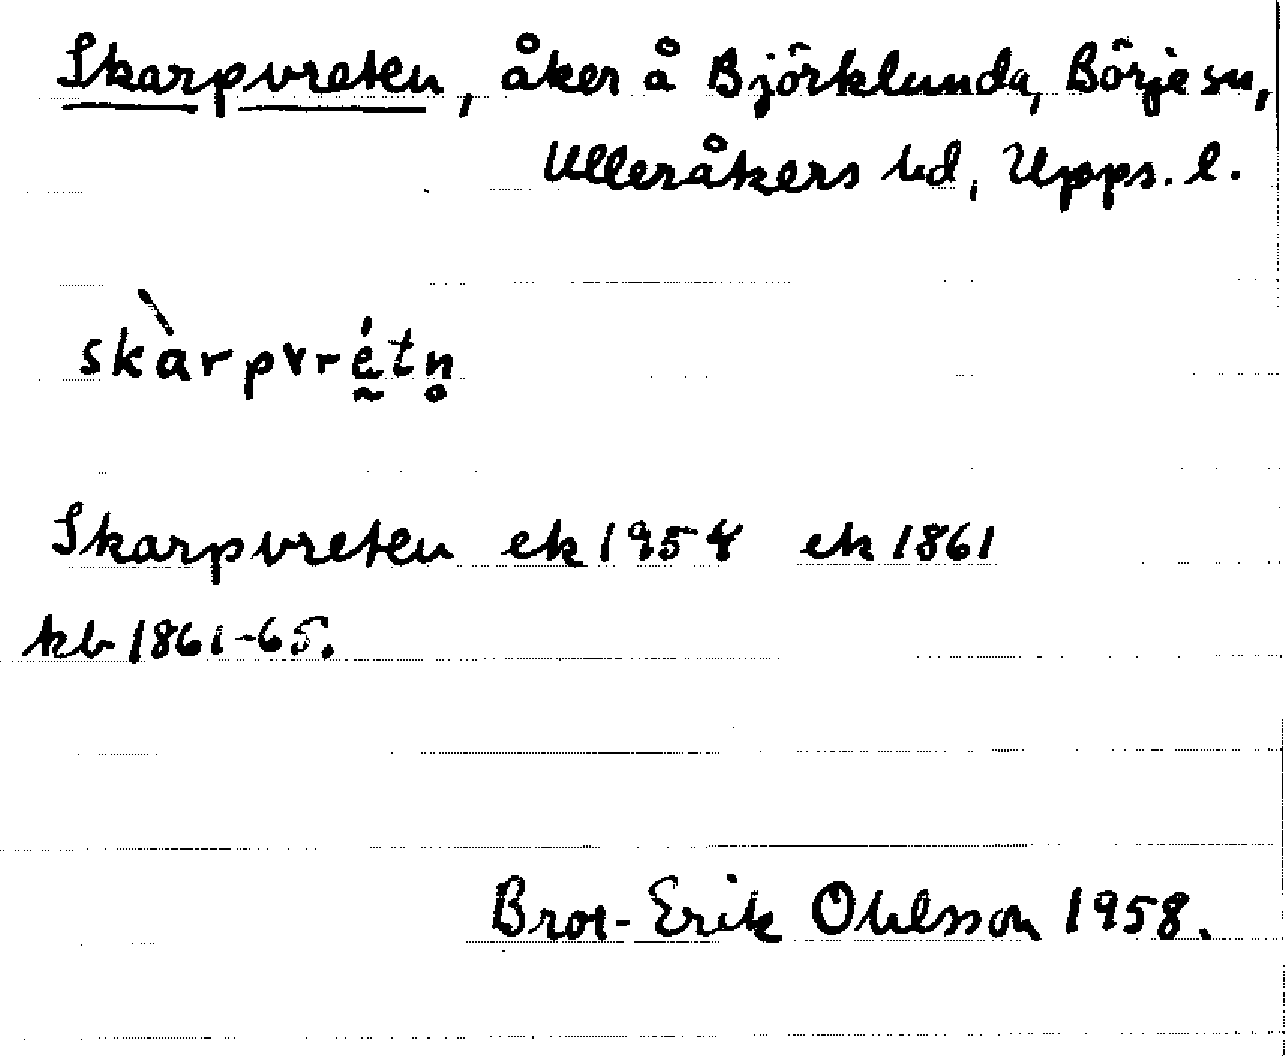 Skarpvreten, åker å Björklunda, Börje sn,
Ulleråkers hd, Upps. l.
skàrpvrḛ́tn̥
Skarpvreten ek 1954 ek 1861
kb 1861-65.
Bror-Erik Ohlsson 1958.